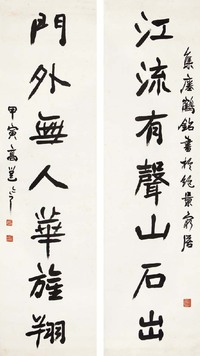 江流有聲山石出
集瘞鶴銘書於絕景居
門外無人華旌翔
甲寅高邕之